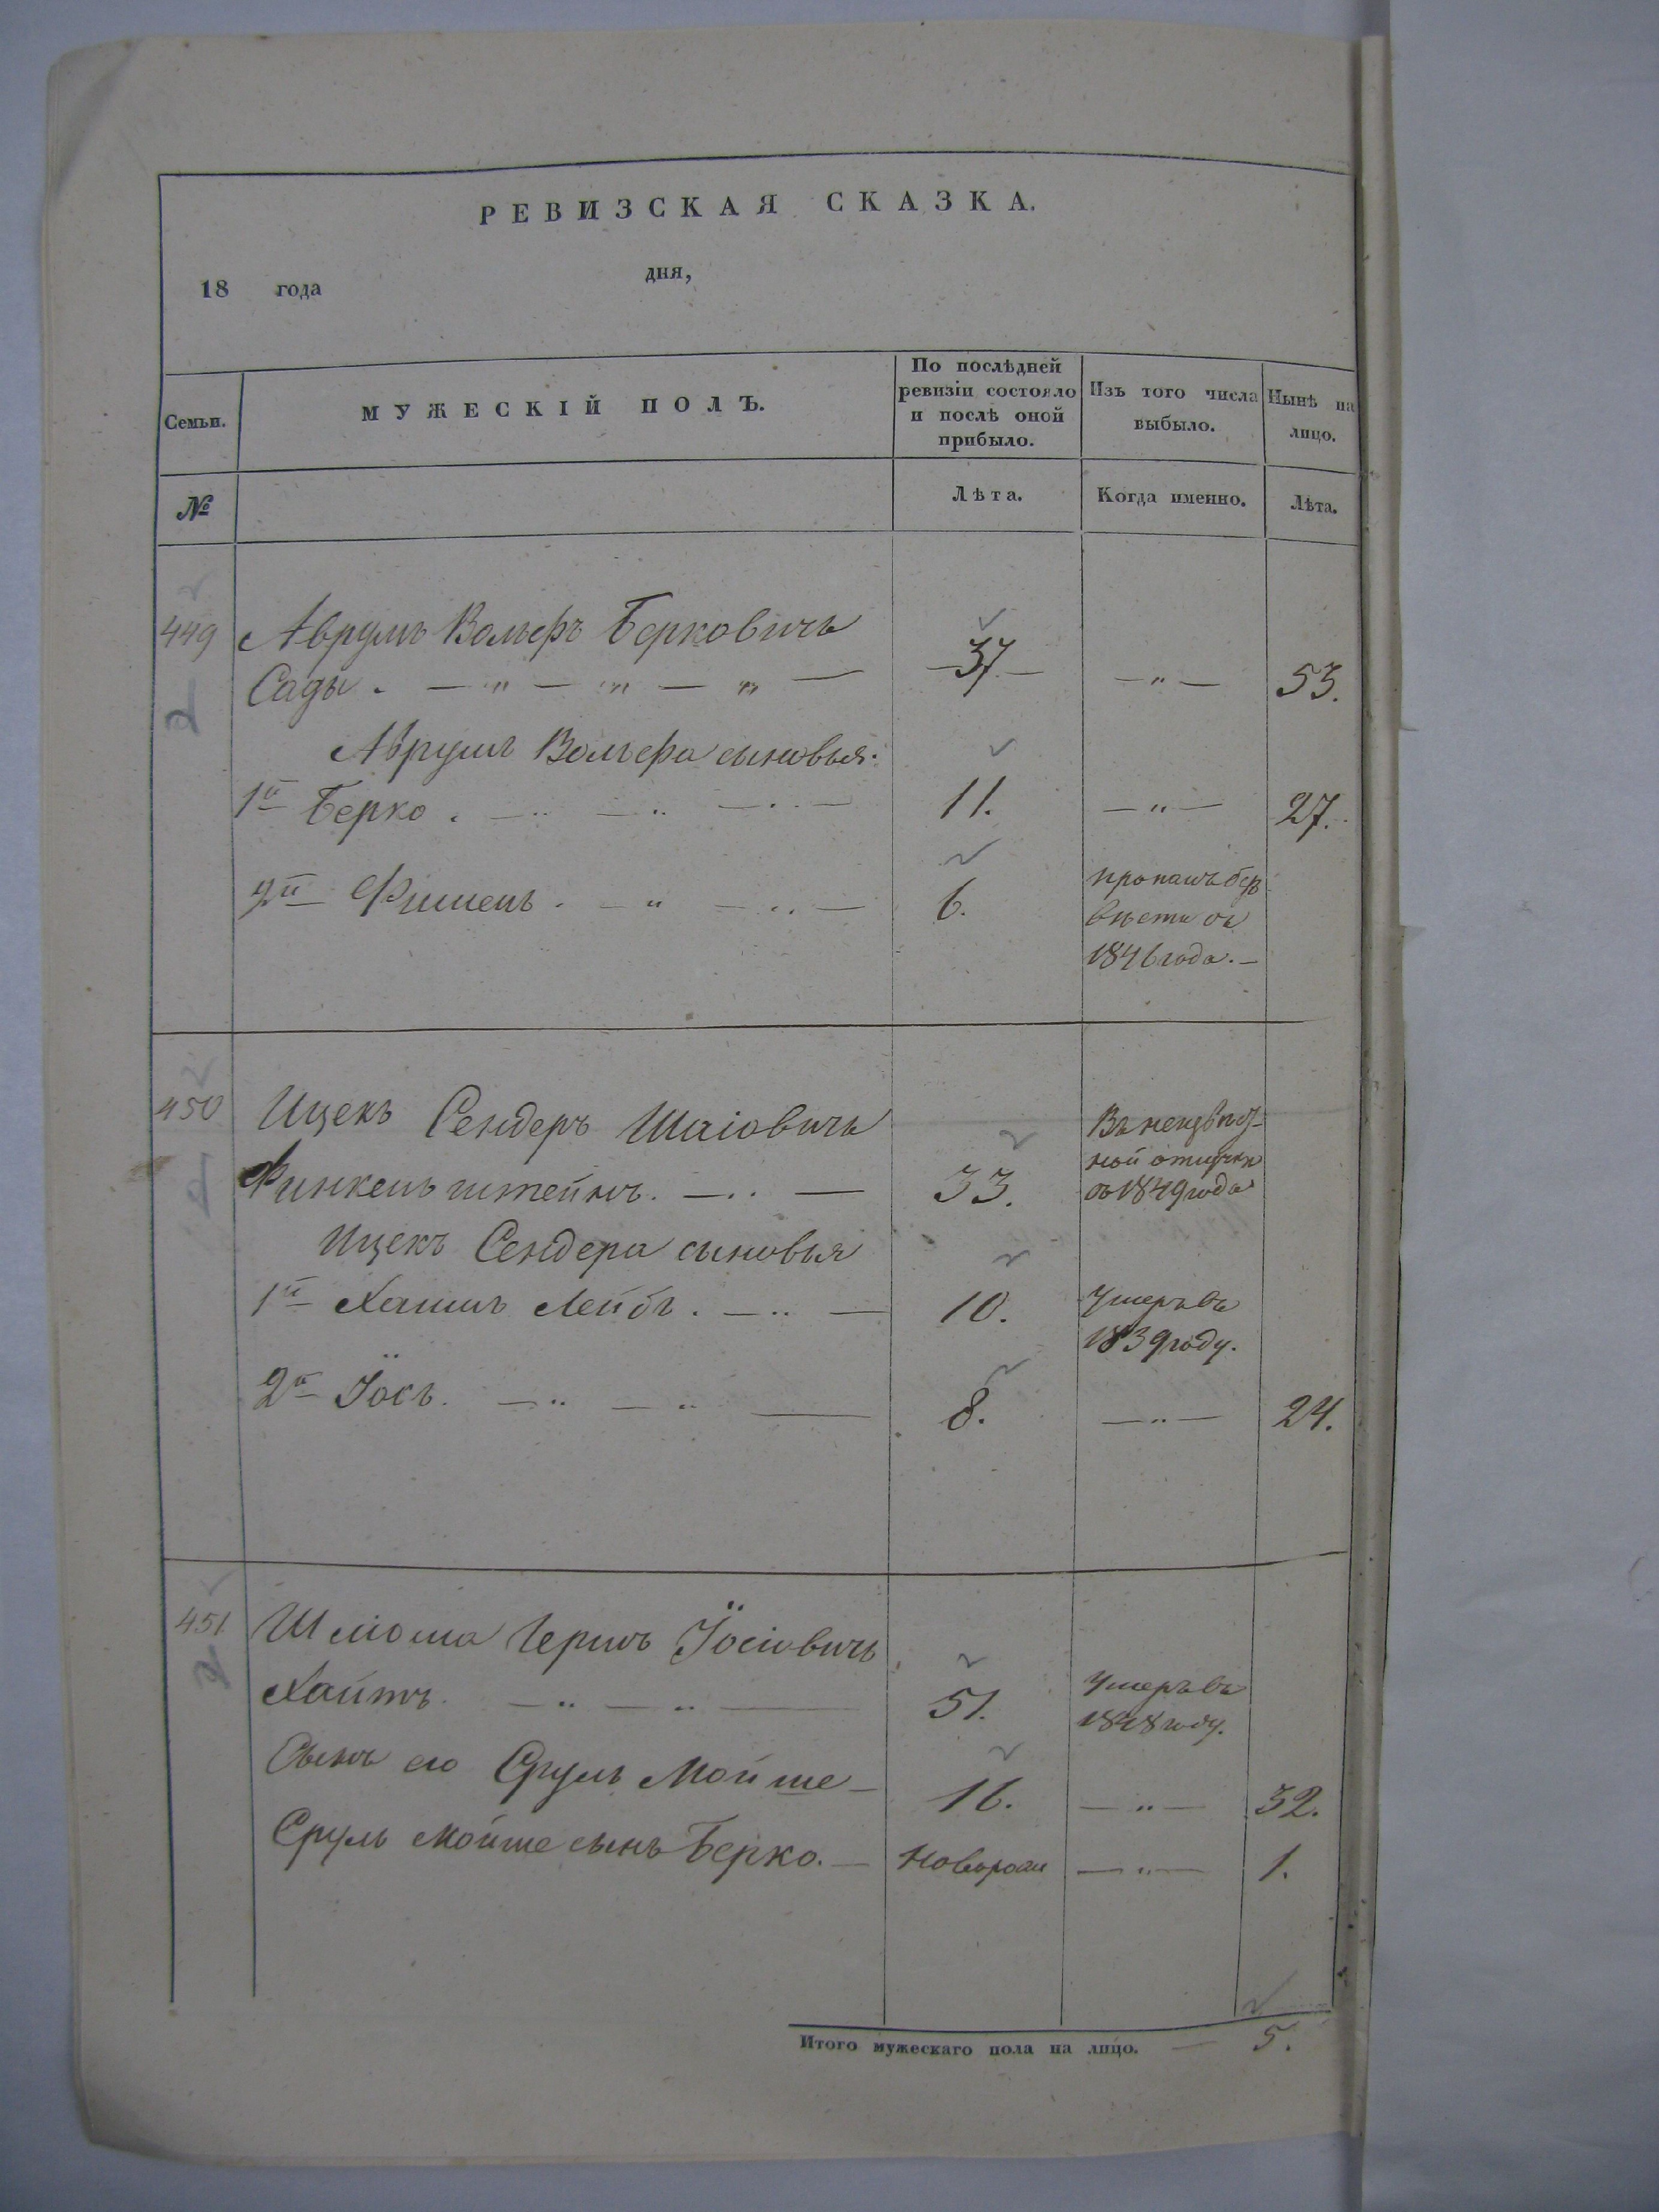 РЕВИЗСКАЯ СКАЗКА.
18 года дня,
Семьи.
МУЖЕСКІЙ ПОЛЪ.
По послѣдней
ревизіи состояло
и послѣ оной
прибыло.
Изъ того числа
выбыло.
Нынѣ на
лицо.
№
Лѣта.
Когда именно.
Лѣта.
449 Аврумъ Вольфъ Берковичъ
Сады. — „ — „ — „ — 37. — „ — 53.
Аврумъ Вольфа сыновья:
1й Берко. — „ — „ — „ — 11. — „ — 27.
2й Фишель. — „ — „ — 6. пропалъ безъ
вѣсти съ
1846 года. —
450 Ицекъ Сендеръ Шаіовичъ
Финкельштейнъ. — „ — 33. Въ неизвѣст-
ной отлучки
съ 1849 года
Ицекъ Сендера сыновья
1й Хаимъ Лейбъ. — „ — 10. Умеръ въ
1839 году.
2й Іосъ. — „ — „ — 8. — „ — 24.
451. Шліома Гершъ Іосіовичъ
Хаитъ. — „ — „ — 51. Умеръ въ
1848 году.
Сынъ его Сруль Мойше — 16. — „ — 32.
Сруль Мойше сынъ Берко. — Новорож — „ — 1.
Итого мужескаго пола на лицо. — 5.